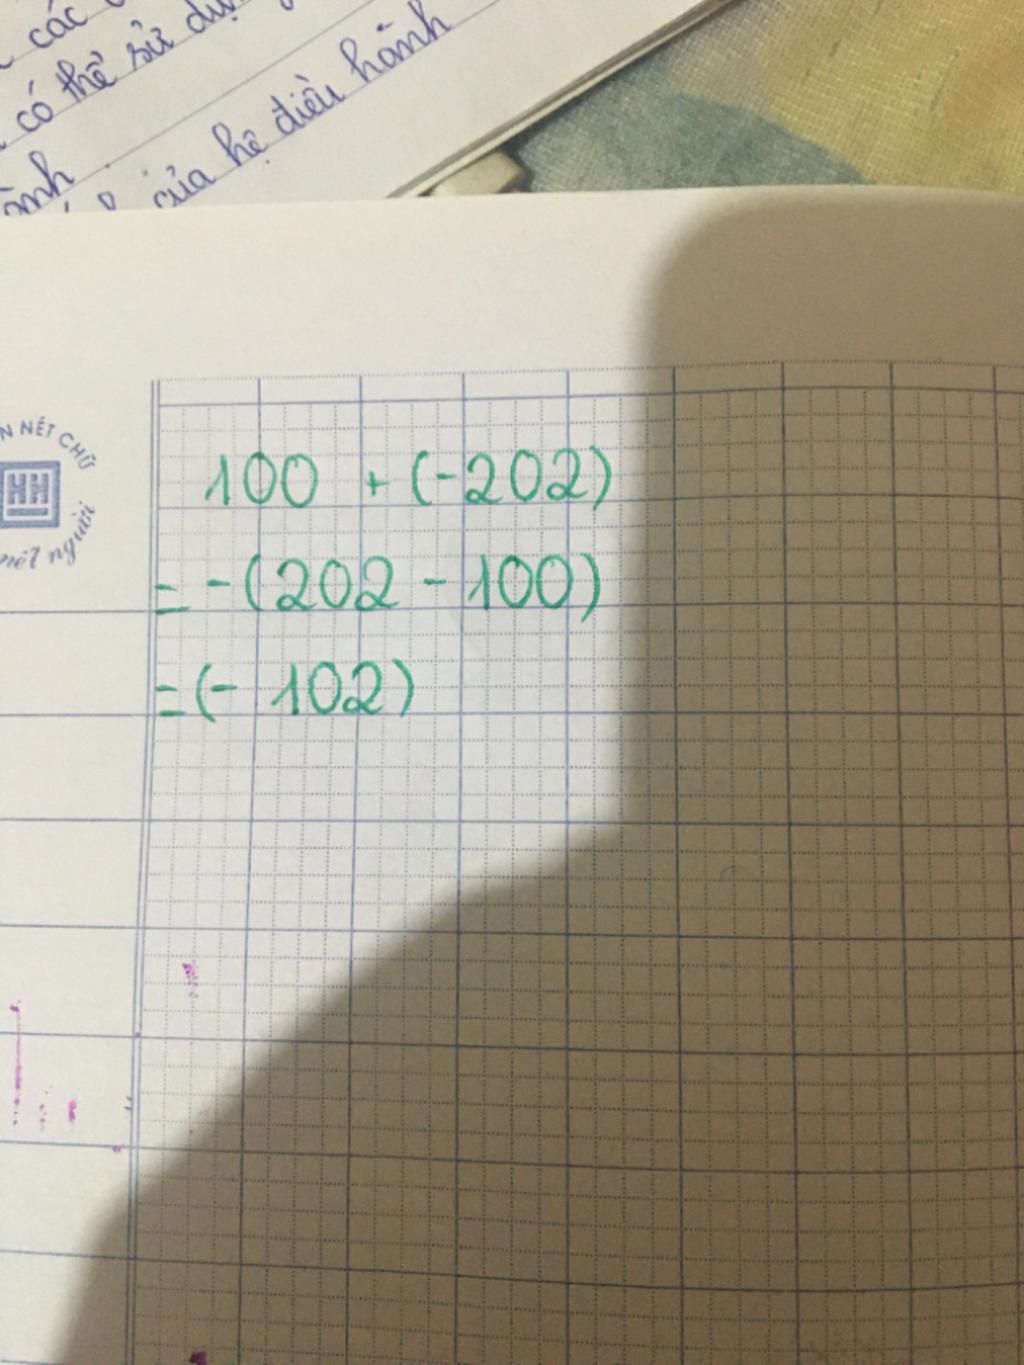 các
có thể sử
của hệ điều hành
N NÉT CHỮ
HH
nét người
100 + (-202)
= -(202 - 100)
= (- 102)